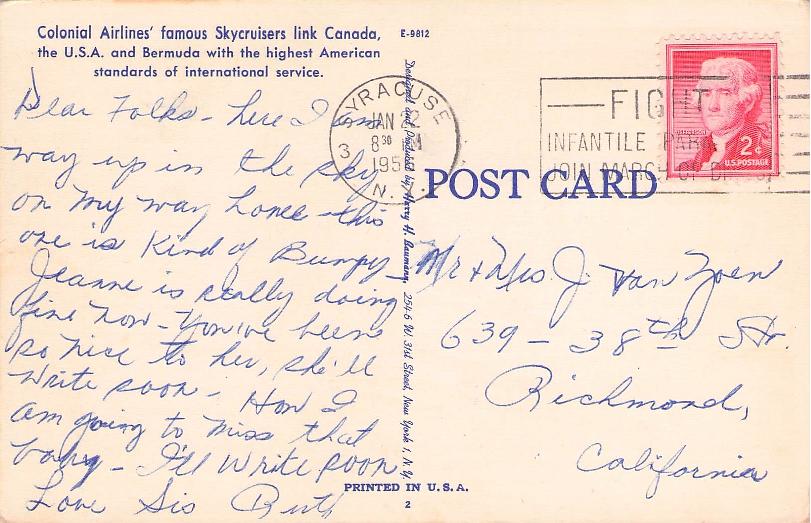 Colonial Airlines' famous Skycruisers link Canada,
the U.S.A. and Bermuda with the highest American
standards of international service.
E-9812
Dear Folks - here I am
way up in the sky
on my way home - this
one is Kind of Bumpy -
Jeanne is really doing
fine now - You've been
so nice to her, she'll
write soon - How I
am going to miss that
baby - I'll write soon
Love Sis Ruth
SYRACUSE
JAN
8 30
3
195
N.
Designed and Produced by Harry H. Baumann, 254-5 W. 31st Street, New York 1, N.Y.
FIGHT
INFANTILE PARA
JOIN MARCH OF
JEFFERSON
2¢
U.S. POSTAGE
POST CARD
Mr & Mrs J. Van Zoen
639 - 38th St.
Richmond,
California
PRINTED IN U.S.A.
2